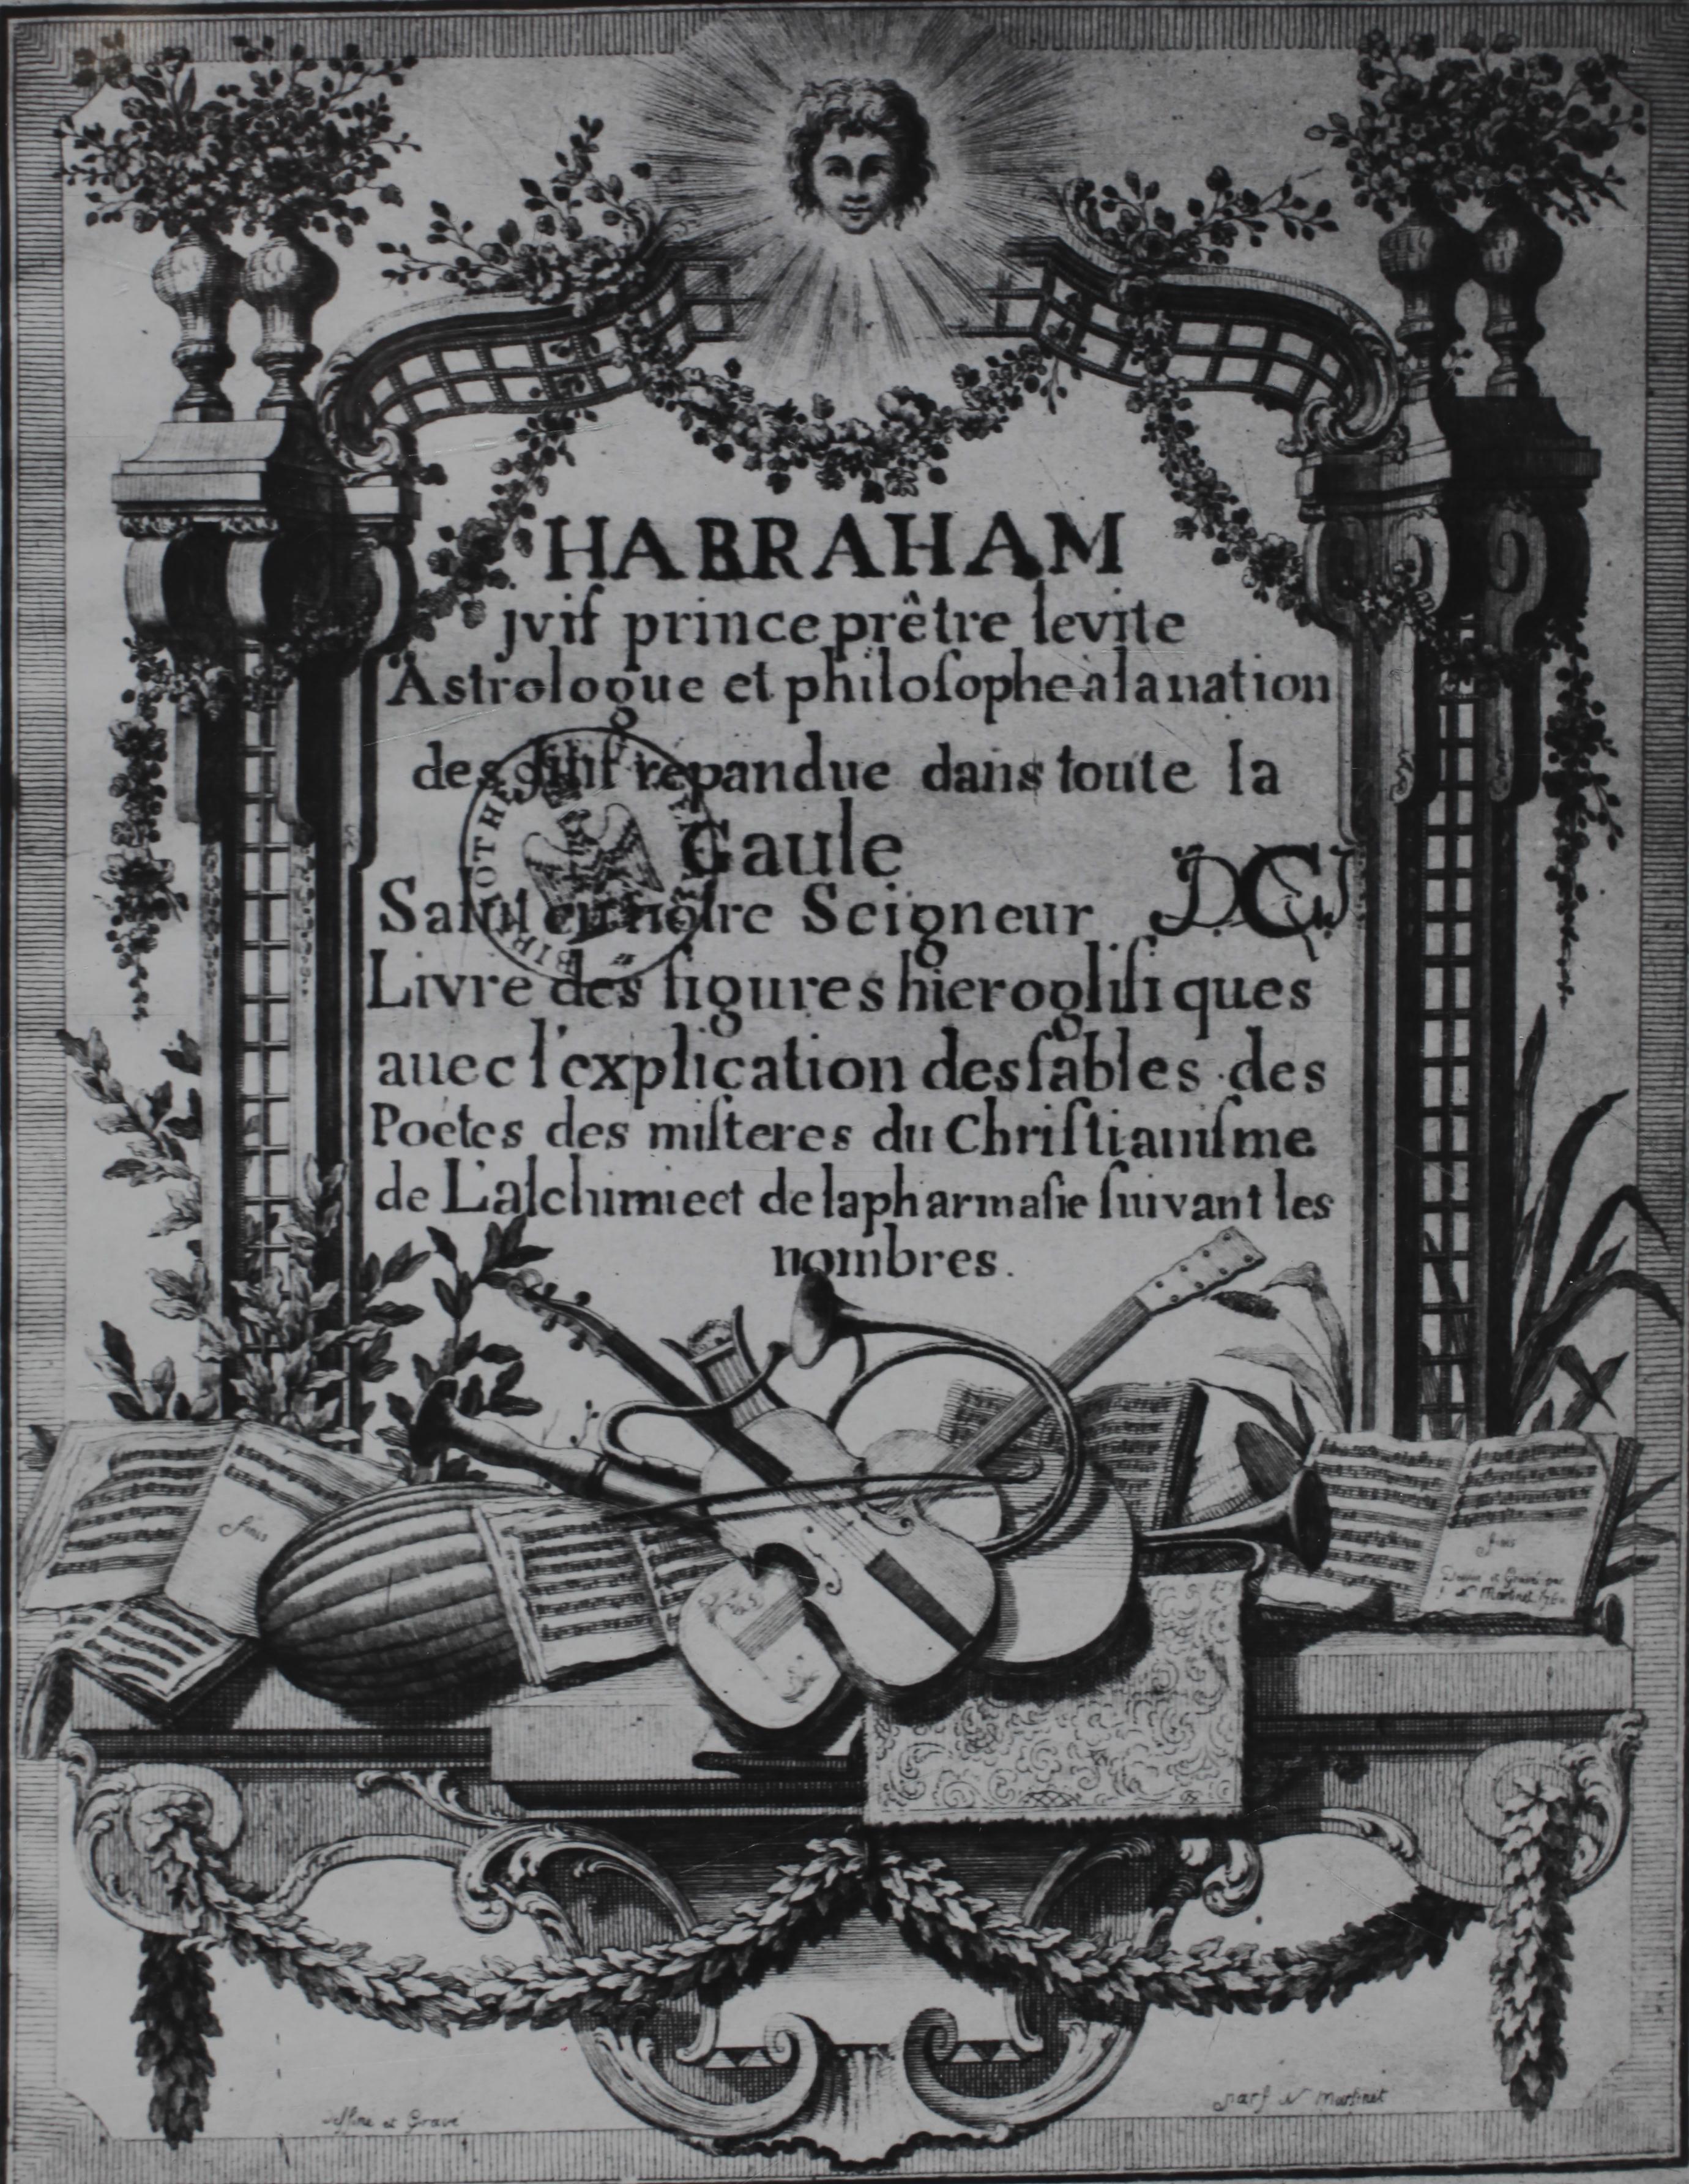 HABRAHAM
jvif prince prêtre levite
Astrologue et philoſophe a la nation
des repandue dans toute la
Gaule
Salut en notre Seigneur DCJ
Livre des figures hieroglifiques
auec l'explication des fables des
Poëtes des miſteres du Chriſtianiſme
de L'alchimie et de la pharmaſie ſuivant les
nombres.
finis
finis
Dessine et Gravé par
N Martinet
BIBLIOTHE
et Gravé
par N Martinet